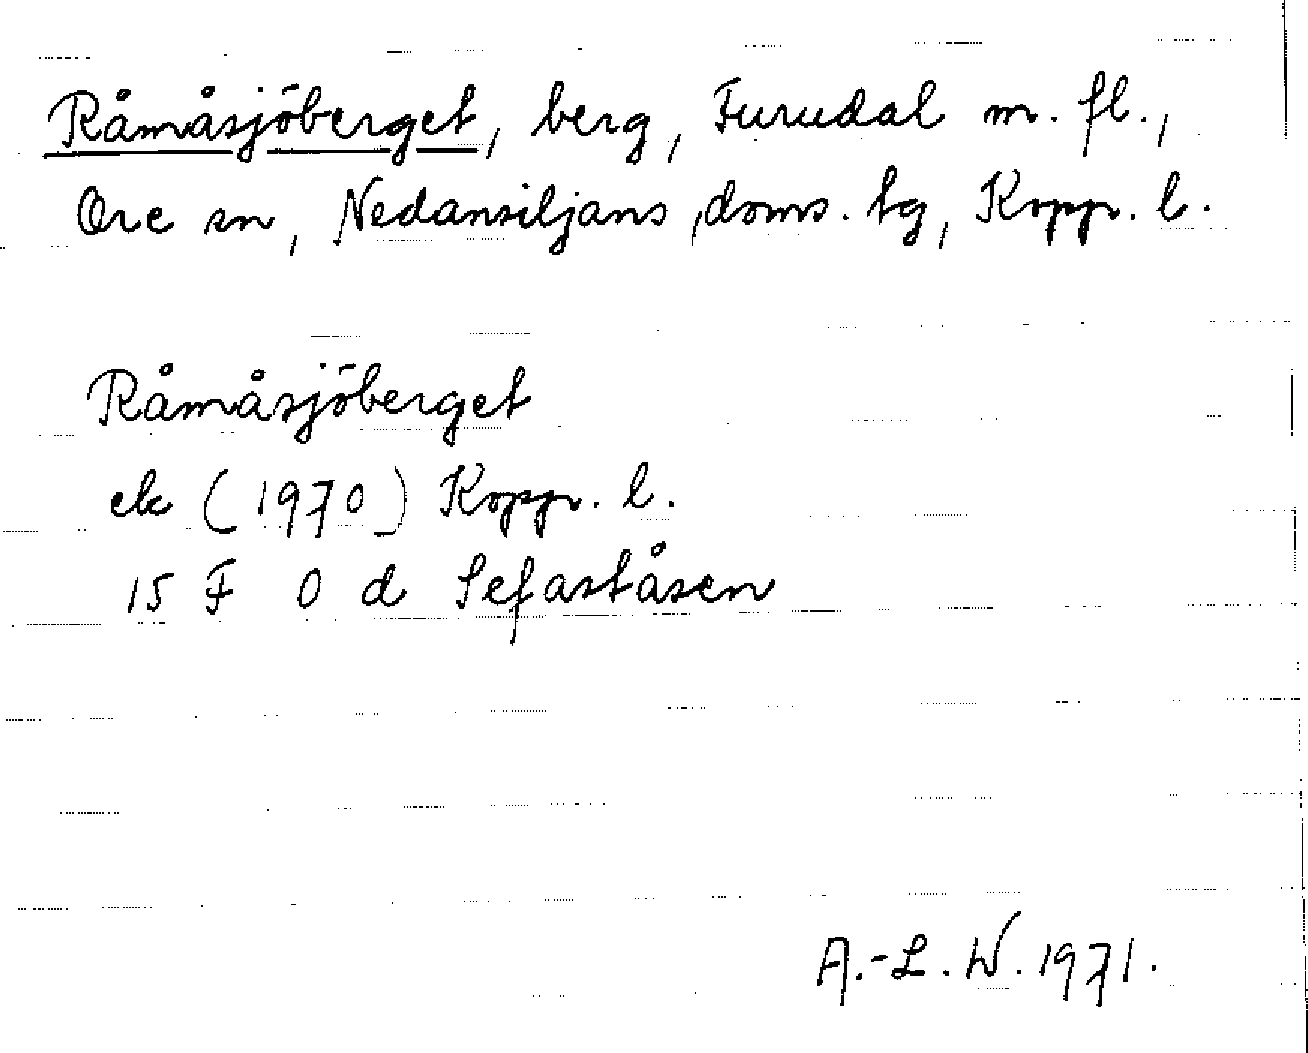 Råmåsjöberget, berg, Furudal m. fl.,
Ore sn, Nedansiljans doms. tg, Kopp. l.
Råmåsjöberget
ek (1970) Kopp. l.
15 F 0 d Sefaståsen
A.-L. W. 1971.